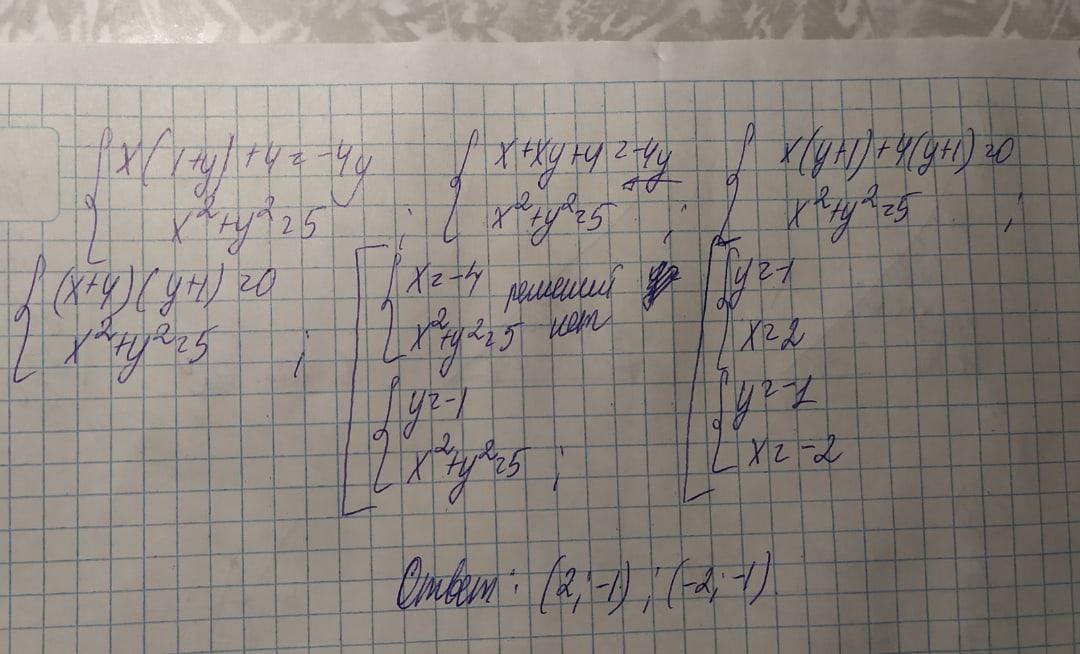 { x(1+y)+4=-4y
x²+y²=5 ;
{ x+xy+4=-4y
x²+y²=5 ;
{ x(y+1)+4(y+1)=0
x²+y²=5 ;
{ (x+4)(y+1)=0
x²+y²=5 ;
[ { x=-4
x²+y²=5 решений нет
{ y=-1
x²+y²=5 ;
[ { y=-1
x=2
{ y=-1
x=-2
Ответ: (2;-1) ; (-2;-1)